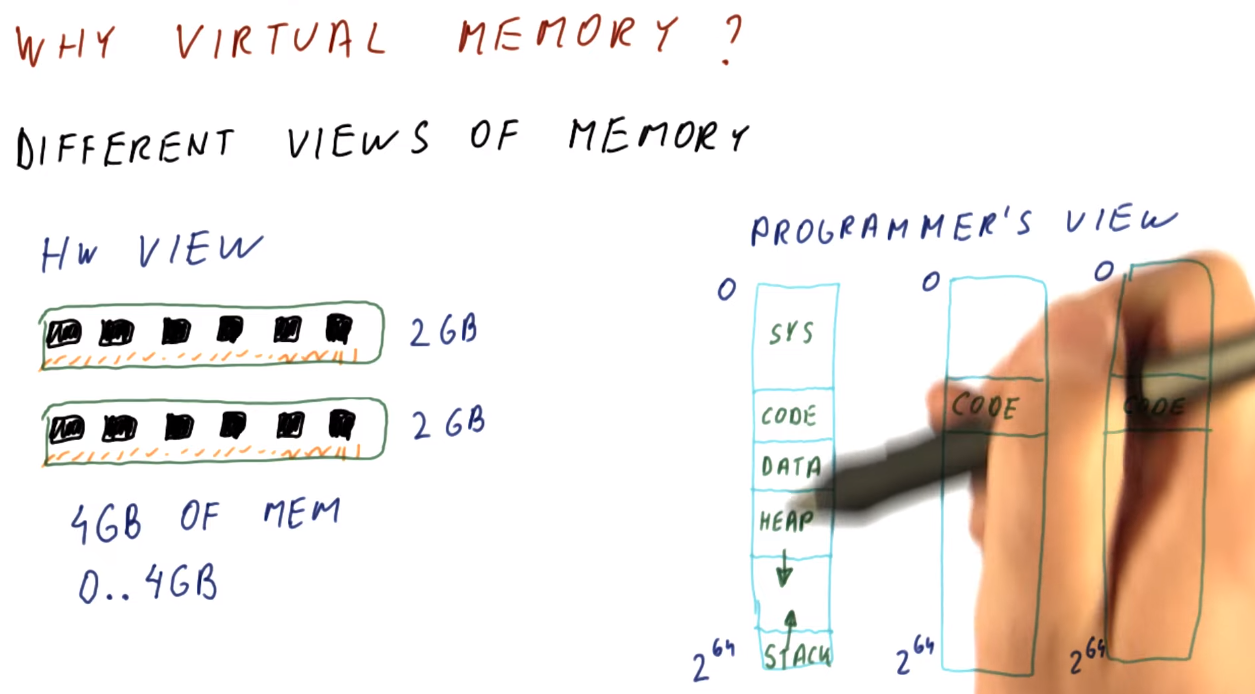 WHY VIRTUAL MEMORY ?
DIFFERENT VIEWS OF MEMORY
HW VIEW
2 GB
2 GB
4GB OF MEM
0.. 4GB
PROGRAMMER'S VIEW
0
SYS
CODE
DATA
HEAP
STACK
2^64
0
CODE
2^64
0
CODE
2^64